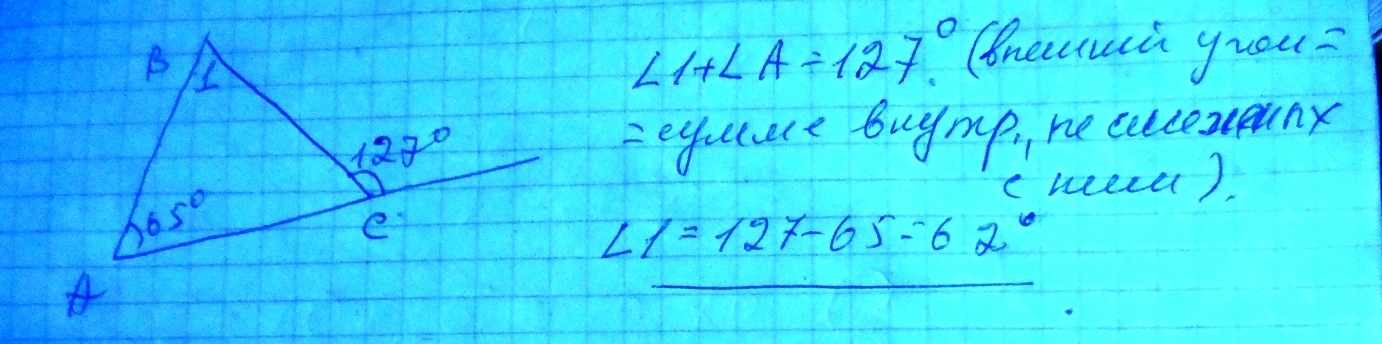 B
1
127°
65°
C
A
∠1+∠A=127° (внешний угол=
=сумме внутр., не смежных
с ним).
∠1=127-65=62°